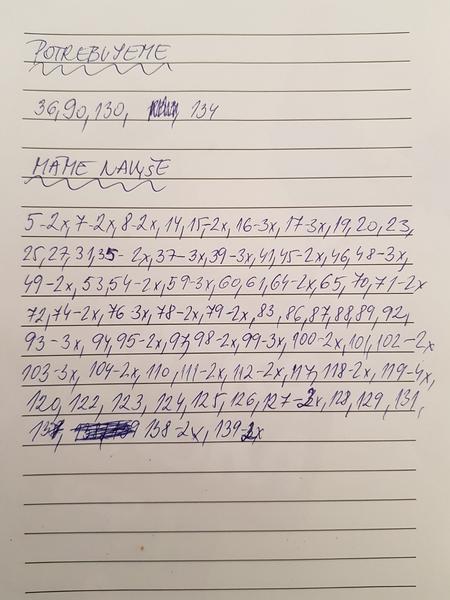 POTREBUJEME
36,90,130, 134
MÁME NAVYŠE
5-2x,7-2x,8-2x,14,15-2x,16-3x,17-3x,19,20,23,
25,27,31,35-2x,37-3x,39-3x,41,45-2x,46,48-3x,
49-2x,53,54-2x,59-3x,60,61,64-2x,65,70,71-2x
72,74-2x,76-3x,78-2x,79-2x,83,86,87,88,89,92,
93-3x,94,95-2x,97,98-2x,99-3x,100-2x,101,102-2x
103-3x,104-2x,110,111-2x,112-2x,117,118-2x,119-4x,
120,122,123,124,125,126,127-2x,128,129,131,
138-2x,139-2x